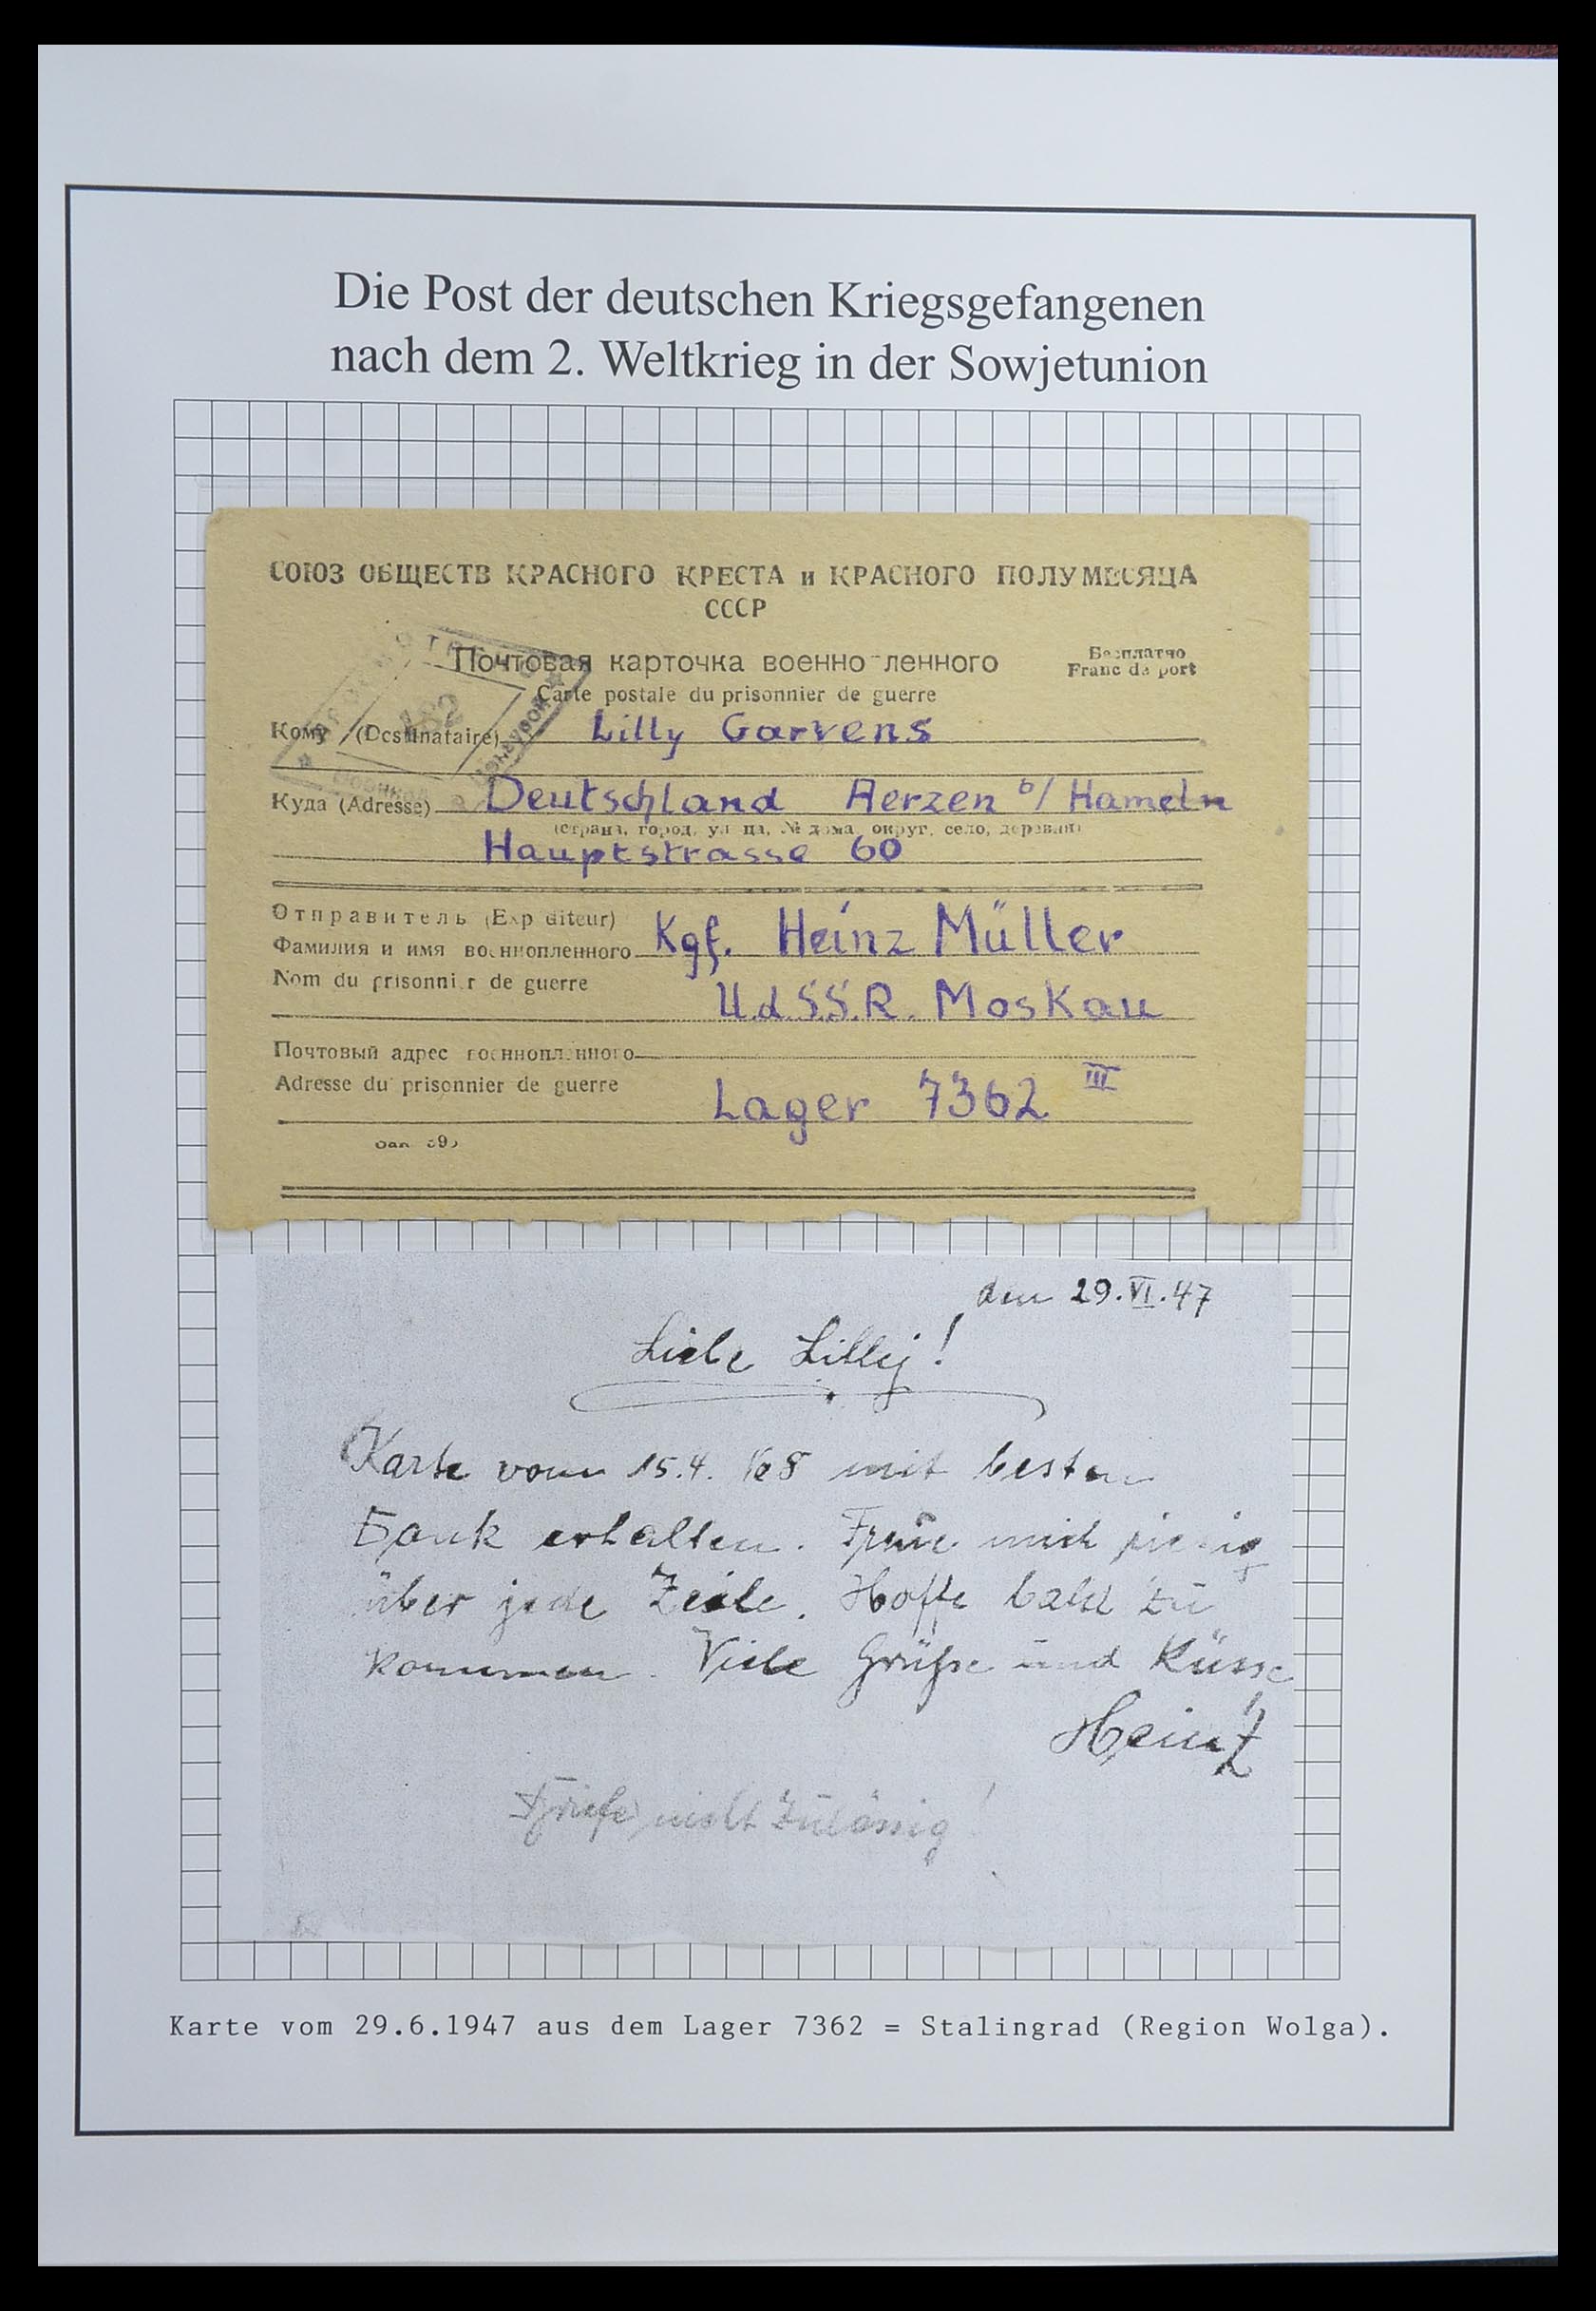 Die Post der deutschen Kriegsgefangenen
nach dem 2. Weltkrieg in der Sowjetunion
СОЮЗ ОБЩЕСТВ КРАСНОГО КРЕСТА и КРАСНОГО ПОЛУМЕСЯЦА
СССР
Почтовая карточка военно-ленного
Бесплатно
Carte postale du prisonnier de guerre
Franc de port
Кому (Destinataire) Lilly Garvens
Куда (Adresse) Deutschland Aerzen b/ Hameln
(страна, город, улица, № дома, округ, село, деревня)
Hauptstrasse 60
Отправитель (Expéditeur)
Фамилия и имя военнопленного Kgf. Heinz Müller
Nom du prisonnier de guerre
U.d.S.S.R. Moskau
Почтовый адрес военнопленного
Adresse du prisonnier de guerre
Lager 7362 III
den 29.VI.47
Liebe Lilly!
Karte vom 15.4. mit besten
Dank erhalten. Freue mich riesig
über jede Zeile. Hoffe bald zu
kommen. Viele Grüße und Küsse
Heinz
Briefe nicht zulässig!
Karte vom 29.6.1947 aus dem Lager 7362 = Stalingrad (Region Wolga).